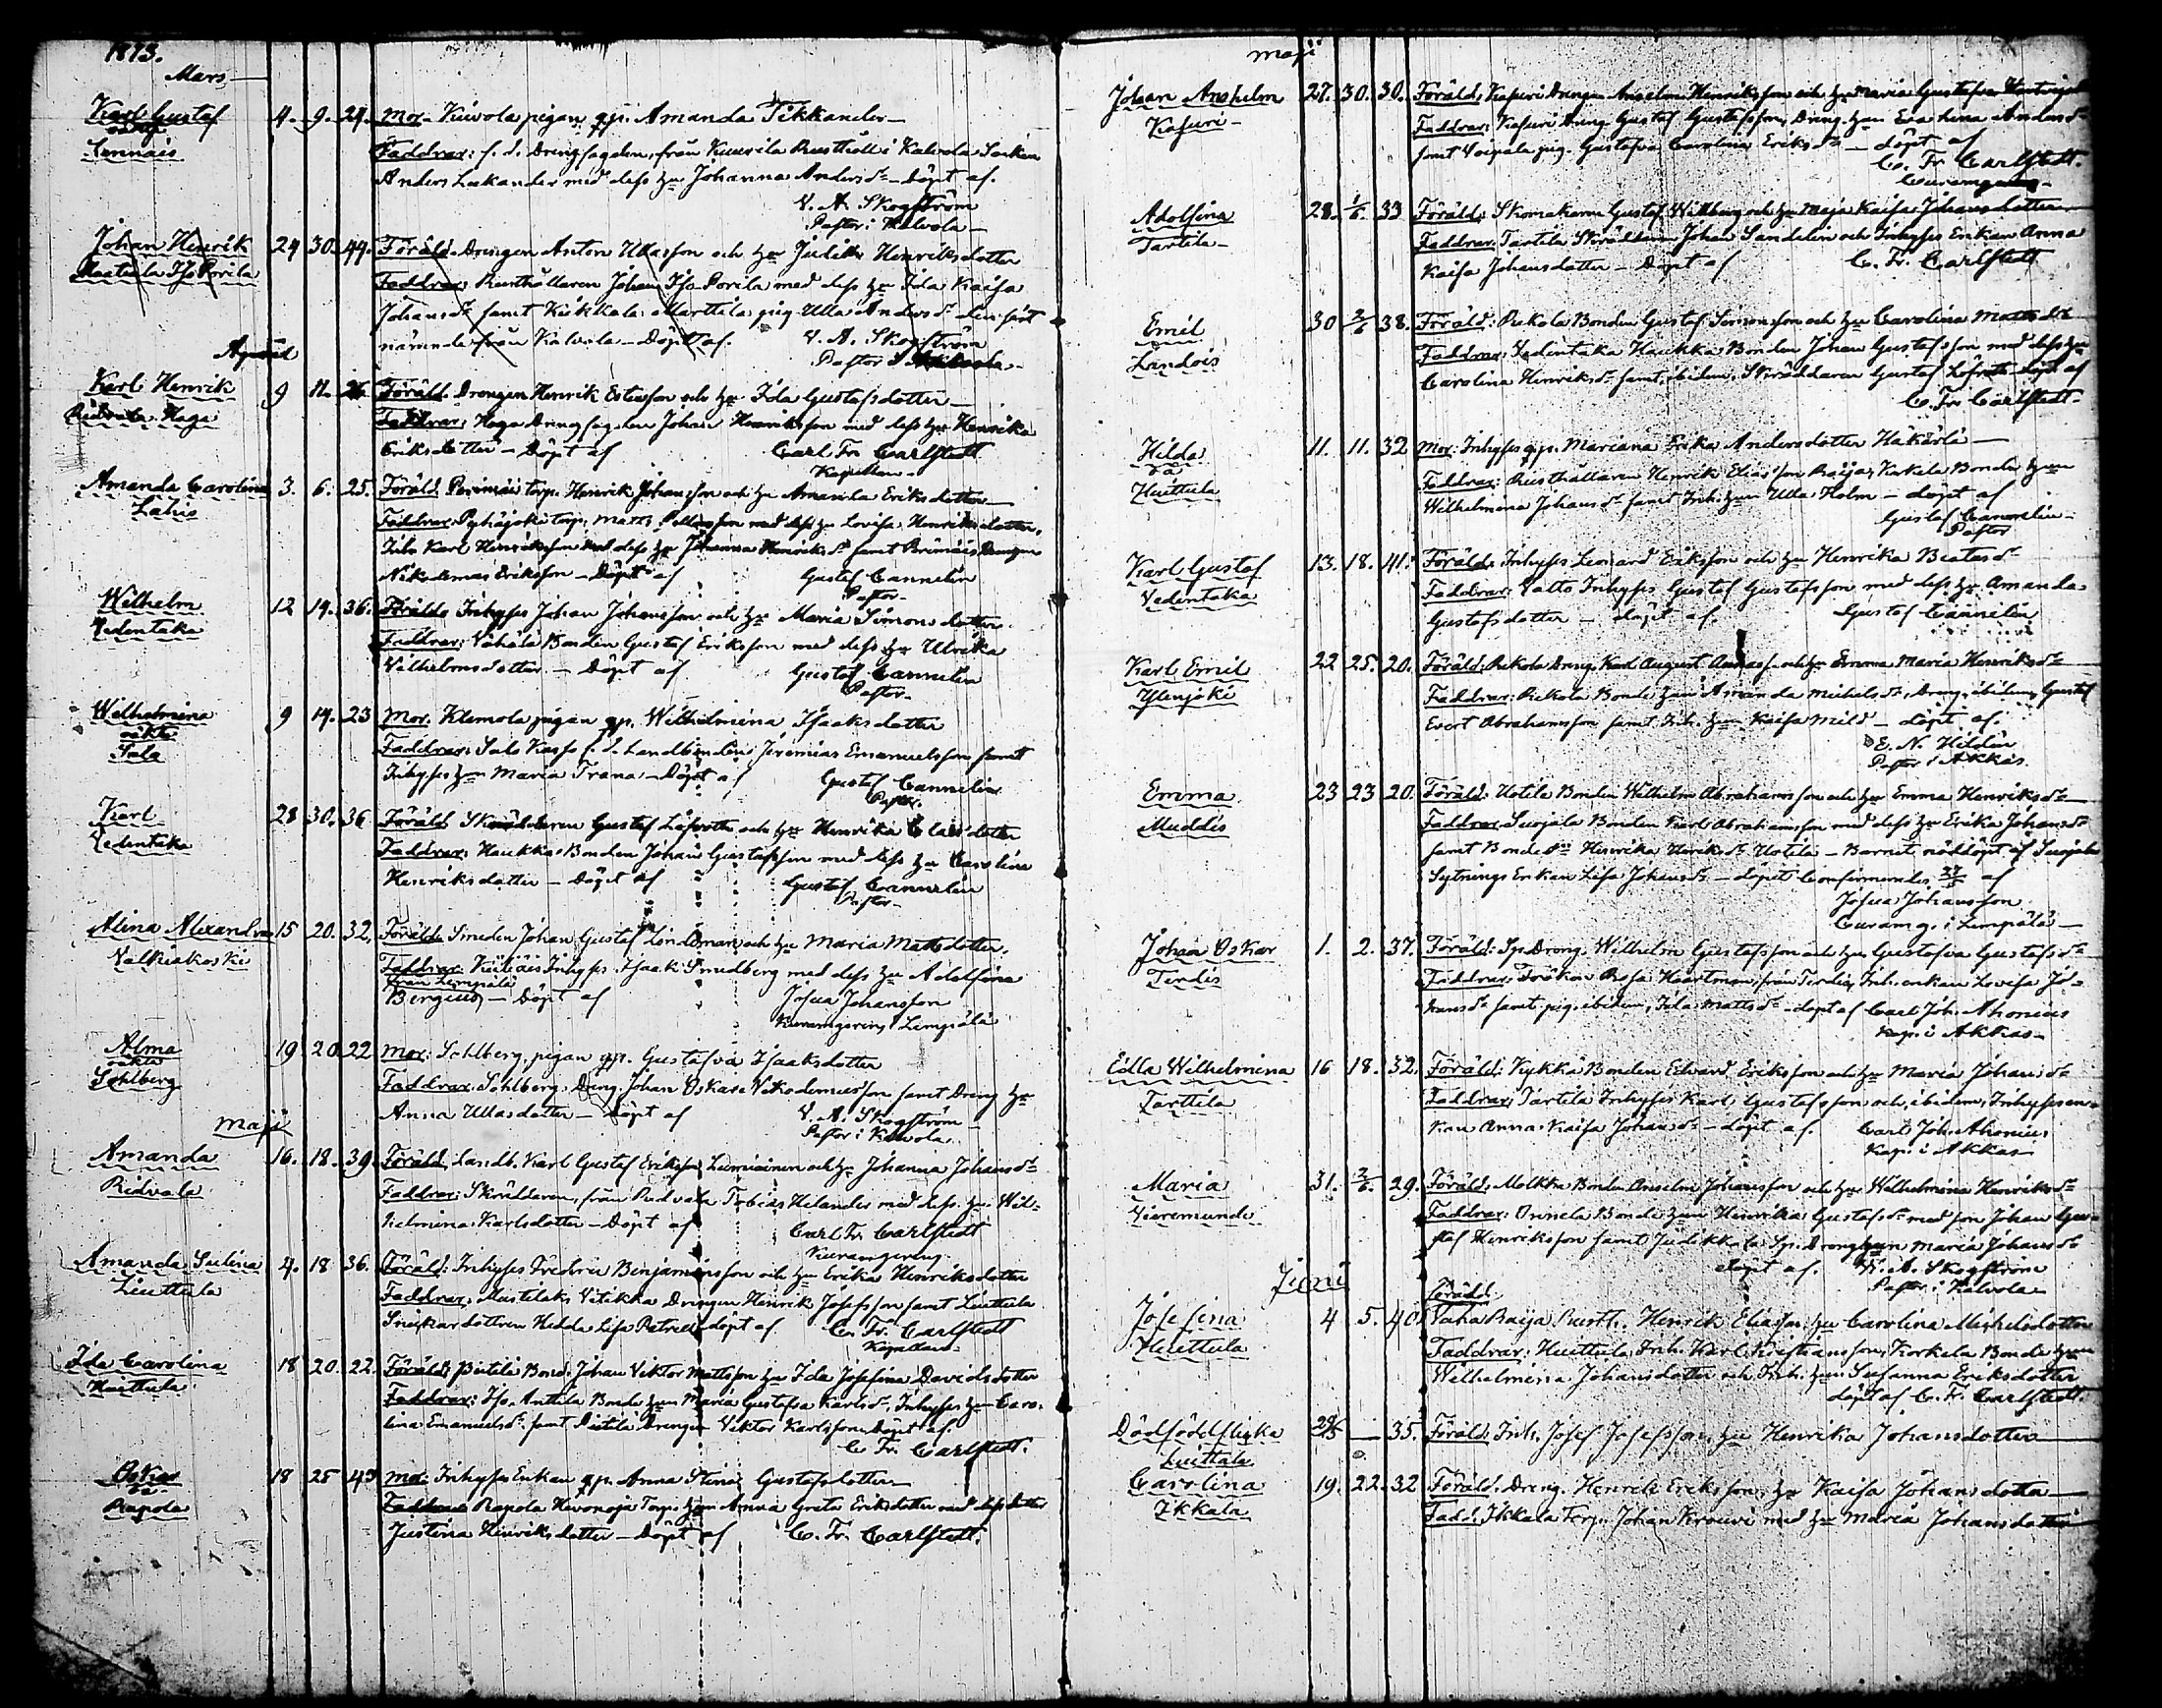 1873.
Mars
Karl Gustaf 4. 9. 29. Mor. Kuivola pigan gp. Amanda Tikkander
oäkta
Sennäis
Faddrar: f. d. Drängsagden, från Rusthåll i Kalvola Socken
Anders Lekander med dess hu Johanna Andersdr – Döpt af.
V. A. Skogström
Pastor i Kalvola
Johan Henrik 24 30. 44. Föräld. Drengen Anton Ullasson och hu Judith Henriksdotter
Iso Porila
Faddrar: Rusthållaren Johan Iso-Porila med dess hu Ida Kaisa
Johansdr samt Kukkala Marttila pig. Ulla Andersdr
från Kalvola – Döpt af. V. A. Skogström
Pastor i Kalvola
April
Karl Henrik 9 11. 26. Föräld. Drengen Henrik son och hu Ida Gustafsdotter
Ridvala Haga
Faddrar: Haga Drengsagden Johan Henriksson med dess hu Henrika
Eriksdotter – Döpt af Carl Fr. Carlstedt
Kapellan
Amanda Carolina 3. 6. 25. Föräld. torp. Henrik Johansson och hu Amanda Eriksdotter
Lahis
Faddrar: torp. Matts son med dess hu Lovisa Henriksdotter,
Karl Henriksson med dess hu Johanna Henriksdr samt Drengen
Nikodemus Eriksson – Döpt af Gustaf Cannelin
Pastor
Wilhelm 12 19. 36. Föräld. Inhyses Johan Johansson och hu Maria Simonsdotter
Vedentaka
Faddrar: Vähälä Bonden Gustaf Eriksson med dess hu Ulrika
Wilhelmsdotter – Döpt af Gustaf Cannelin
Pastor
Wilhelmina 9 19. 23 Mor. Klemola pigan gp. Wilhelmina Isaksdotter
oäkta
Sala
Faddrar: Sala f. d. Landbonden Jeremias Emanuelsson samt
Inhyses hu Maria Trana – Döpt af Gustaf Cannelin
Pastor.
Karl 28 30. 36 Föräld. Skräddaren Gustaf Löfroth och hu Henrika dotter
Vedentaka
Faddrar: Haukka Bonden Johan Gustafsson med dess hu Carolina
Henriksdotter – Döpt af Gustaf Cannelin
Pastor
Alina Alexandra 15 20. 32. Föräld. Smeden Johan Gustaf Lindeman och hu Maria Mattsdotter.
Valkiakoski
Faddrar: Inhyses Isaak Smedberg med dess hu Adolfina
från Lempälä
Bergius – Döpt af Josua Johansson
i Lempälä
Alma 19 20. 22 Mor: Sohlberg, pigan gp. Gustafva Isaksdotter
oäkta
Sohlberg
Faddrar. Sohlberg, Dreng. Johan Oskar Nikodemusson samt Dreng hu
Anna Ullasdotter – Döpt af V. A. Skogström
Pastor i Kalvola
Maji
Amanda 16. 18. 39. Föräld. landb. Karl Gustaf Eriksson Lumiainen och hu Johanna Johansdr
Ridvala
Faddrar: Skräddaren, från Ridvala Tobias Helander med dess hu Wil-
helmina Karlsdotter – Döpt af Carl Fr. Carlstedt
Amanda Sulina 4. 18 36. Föräld: Inhyses Fredric Benjaminsson och hu Erika Henriksdotter
Liuttula
Faddrar: Drengen Henrik Josefsson samt Liuttula
Snickardottren Hedda Lisa döpt af C. Fr. Carlstedt
Kapellan
Ida Carolina 18 20. 22. Föräld. Bond. Johan Viktor Mattsson hu Ida Josefina Davidsdotter
Huittula
Faddrar: Iso-Anttila Bonde hun Maria Gustafva Karlsdr, Inhyses hu Caro-
lina Emanuelsdr samt Drengen Viktor Karlsson döpt af.
C. Fr. Carlstedt.
Oskar 18 25 43 Mor: Inhyses Enkan gp. Anna Stina Gustafsdotter
oä
Rapola
Faddrar Rapola Hevonoja Torp. hun Anna Greta Eriksdotter med dess dotter
Justina Henriksdotter – Döpt af C. Fr. Carlstedt.
Maji
Johan Anshelm 27. 30. 30. Föräld. Kasuri Drengen Anselm Henriksson och hu Maria Gustafva
Kasuri
Faddrar: Kasuri Dreng Gustaf Gustafsson, Dreng. hun Eva Lina Andersdr
samt Voipala pig. Gustafva Carolina Eriksdr – döpt af
C. Fr. Carlstedt.
Adolfina 28. 1/6. 33 Föräld: Skomakaren Gustaf Willberg och hu Maja Kaisa Johansdotter
Tartila
Faddrar. Tartila Skräddaren Johan Sandelin och Inhyses Enkan Anna
Kaisa Johansdotter – Döpt af C. Fr. Carlstedt
Emil 30 2/6 38. Föräld: Rekola Bonden Gustaf Simonsson och hu Carolina Mattsdr
Landois
Faddrar: Vedentaka Haukka Bonden Johan Gustafsson med dess hu
Carolina Henriksdr samt, ibidem, Skräddaren Gustaf Löfroth döpt af
C. Fr. Carlstedt
Hilda 11. 11. 32 Mor: Inhyses gp. Mariana Erika Andersdotter Häkärlä
oä
Huittula
Faddrar: Rusthållaren Henrik Eliasson Raija, Bonde hun
Wilhelmina Johansdr samt Inh. hun Ulla Holm – döpt af
Gustaf Cannelin
Pastor
Karl Gustaf 13. 18. 41. Föräld. Inhyses Leonard Eriksson och hu Henrika Beatasdr
Vedentaka
Faddrar: Valto Inhyses Gustaf Gustafsson med dess hu Amanda
Gustafsdotter – döpt af. Gustaf Cannelin
Karl Emil 22 25. 20. Föräld: Rekola Dreng. Karl August och hu Emma Maria Henriksdr
Ylenjoki
Faddrar: Rekola Bonde hun Amanda Mihelsdr, Dreng, ibidem, Gustaf
Evert Abrahamsson samt Inh. hun Kaisa Mild – döpt af.
E. N. Hildén
Pastor i Akkas.
Emma 23 23 20. Föräld: Uotila Bonden Wilhelm Abrahamsson och hu Emma Henriksdr
Muddis
Faddrar. Bonden Karl Abrahamsson med dess hu Erika Johansdr
samt Bonde Henrika Henriksdr Uotila – Barnet nöddöpt af
Sytnings Enkan Lisa Johansdr – dopet Confirmerades af
Josua Johansson
Curamg. i Lempälä
Johan Oskar 1. 2. 37. Föräld: Sp. Dreng. Wilhelm Gustafsson och hu Gustafva Gustafsdr
Terdis
Faddrar: Fröken Rosa Haartman, från Terdis, Inh. enkan Lovisa Jo-
hansdr samt pig. ibidem, Ida Mattsdr – döpt af Carl Joh. Ahonius
Kap. i Akkas
Edla Wilhelmina 16 18. 32. Föräld: Kykkä Bonden Edvard Eriksson och hu Maria Johansdr
Tarttila
Faddrar: Tartila Inhyses Karl Gustafsson och, ibidem, Inhyses en-
kan Anna Kaisa Johansdr – döpt af. Carl Joh. Ahonius
Kap. i Akkas
Maria 31. 2/6. 29. Föräld. Molkka Bonden Anselm Johansson och hu Wilhelmina Henriksdr
Faddrar: Onnela Bonde hun Henrika Gustafsdr med son Johan Gu-
staf Henriksson samt Judikkala Sp. Dreng hun Maria Johansdr
döpt af. V. A. Skogström
Pastor i Kalvola
Juni
Föräld.
Josefina 4 5. 40 Vaha Raija Rusth. Henrik Eliasson hu Carolina Michelsdotter
Huittula
Faddrar: Huittula Inh. Karl Kristiansson, Korkala Bonde hun
Wilhelmina Johansdotter och Inh. hun Susanna Eriksdotter
döpt af C. Fr. Carlstedt.
Dödfödd flicka 29/5 — 35. Föräld. Inh. Josef Josefsson, hu Henrika Johansdotter
Liuttula
Carolina 19. 22. 32 Föräld. Dreng. Henrik Eriksson, hu Kaisa Johansdotter
Ikkala
Fadd. Ikkala Torp. Johan Krouvi med hu Maria Johansdotter